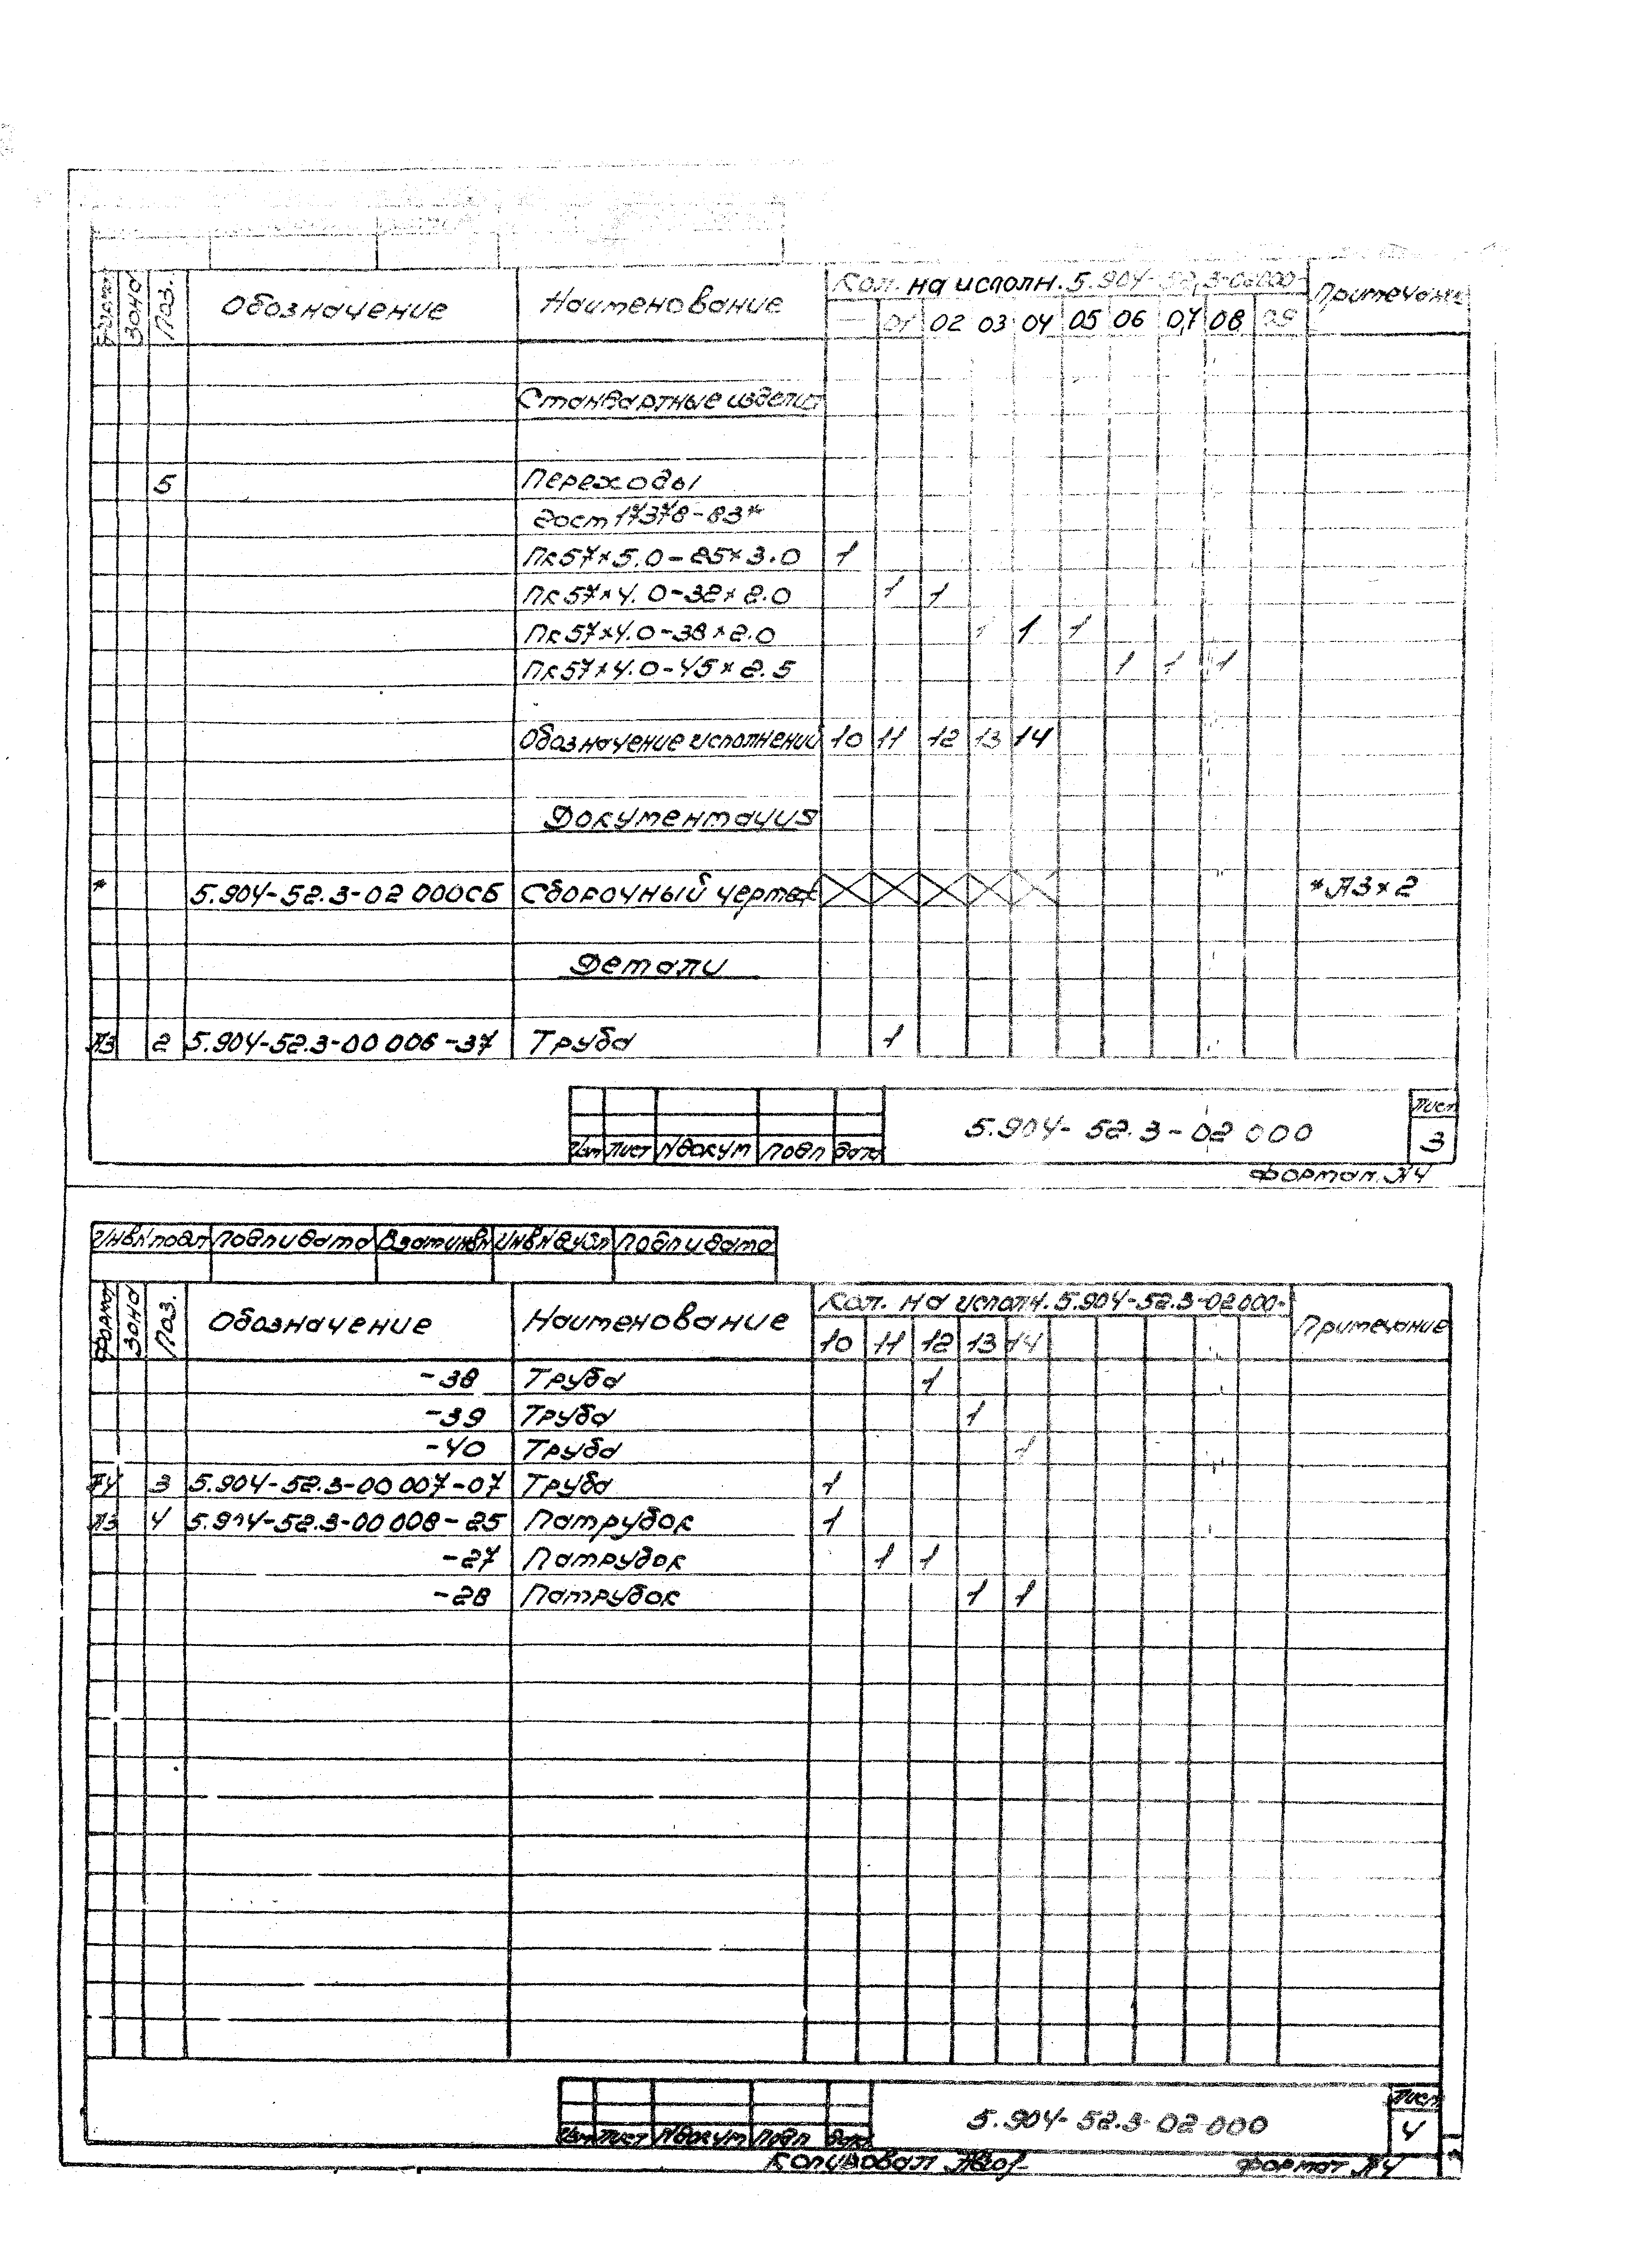 Формат Зона Поз. Обозначение Наименование Кол. на исполн. 5.904-52.3-02000- Примечание
— 01 02 03 04 05 06 07 08 09
Стандартные изделия
5 Переходы
ГОСТ 17378-83*
ПК57×5.0-25×3.0 1
ПК57×4.0-32×2.0 1 1
ПК57×4.0-38×2.0 1 1 1
ПК57×4.0-45×2.5 1 1 1
Обозначение исполнений 10 11 12 13 14
Документация
* 5.904-52.3-02 000СБ Сборочный чертеж *А3×2
Детали
А3 2 5.904-52.3-00 006-37 Труба 1
Изм Лист №докум Подп Дата 5.904-52.3-02 000 Лист 3
Формат А4
Инв№подл Подп и дата Взам инв№ Инв№дубл Подп и дата
Формат Зона Поз. Обозначение Наименование Кол. на исполн. 5.904-52.3-02000- Примечание
10 11 12 13 14
-38 Труба 1
-39 Труба 1
-40 Труба 1
А4 3 5.904-52.3-00 007-07 Труба 1
А3 4 5.904-52.3-00 008-25 Патрубок 1
-27 Патрубок 1 1
-28 Патрубок 1 1
Изм Лист №докум Подп Дата 5.904-52.3-02 000 Лист 4
Копировал Формат А4